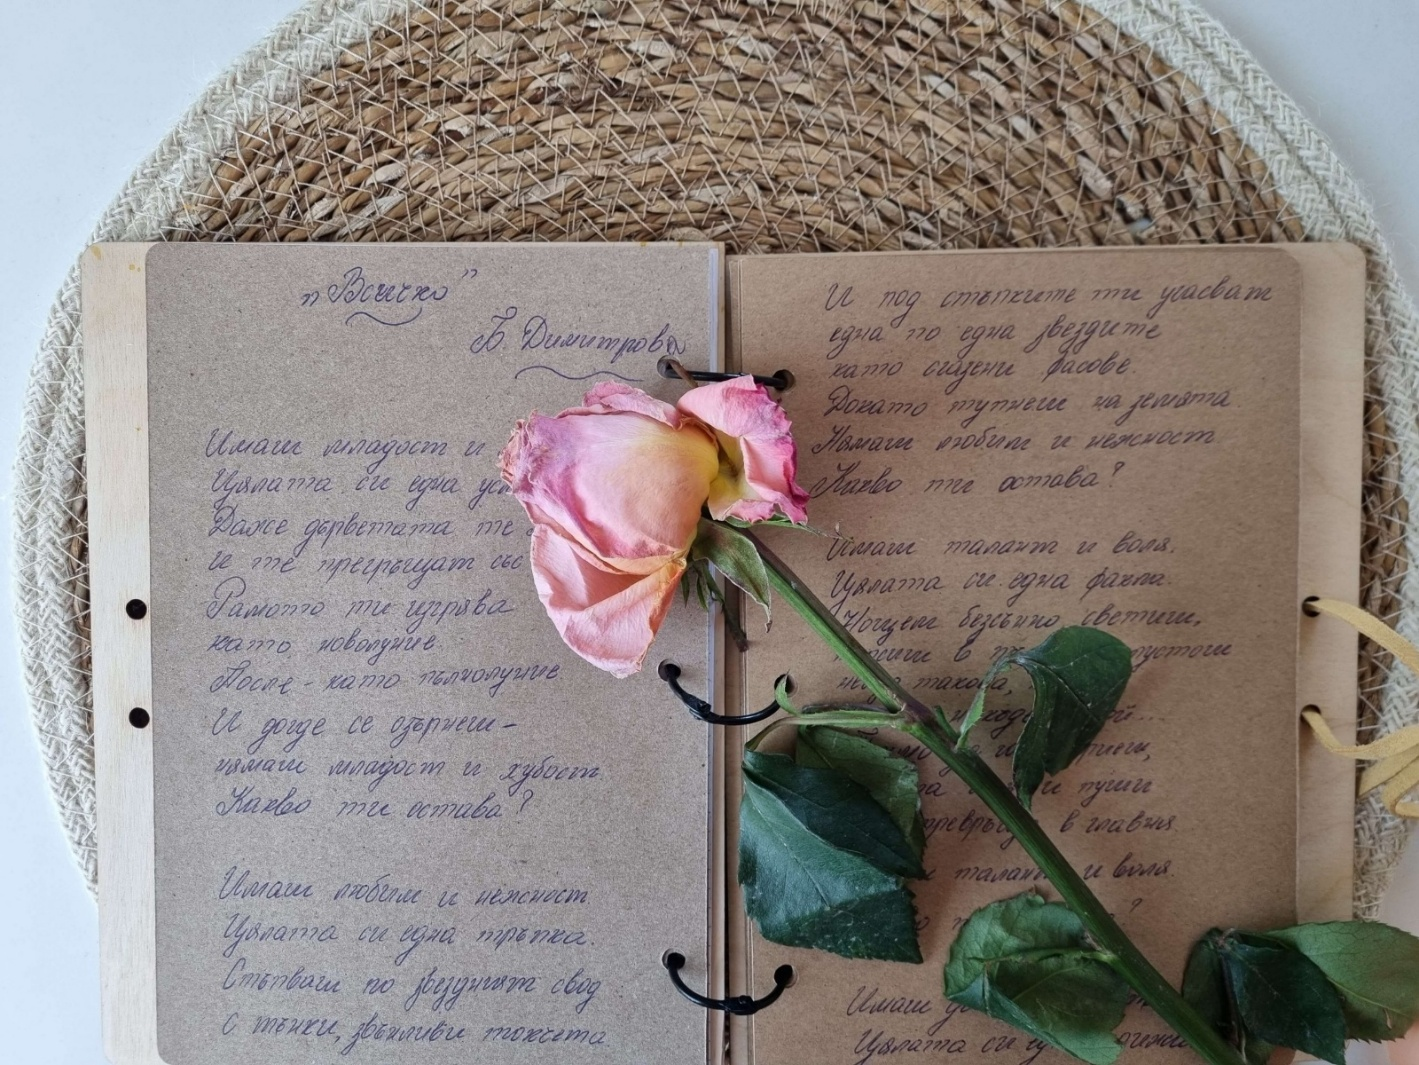 „Всичко"
Б. Димитрова
Имаш младост и
Цялата си една
Даже дърветата те
и те прегръщат със
Рамото ти изгрява
като новолуние.
После - като пълнолуние
И догде се озърнеш -
нямаш младост и хубост.
Какво ти остава?
Имаш любим и нежност.
Цялата си една тръпка.
Стъпваш по звездният свод
с тънки, звънливи токчета
И под стъпките ти угасват
една по една звездите
като сгазени фасове.
Докато тупнеш на земята.
Нямаш любим и нежност
Какво ти остава?
Имаш талант и воля.
Цялата си една факла.
Нощем безсънно светиш,
в
пустош
такава,
пуши
в главня.
талант и воля.
?
Имаш
Цялата си